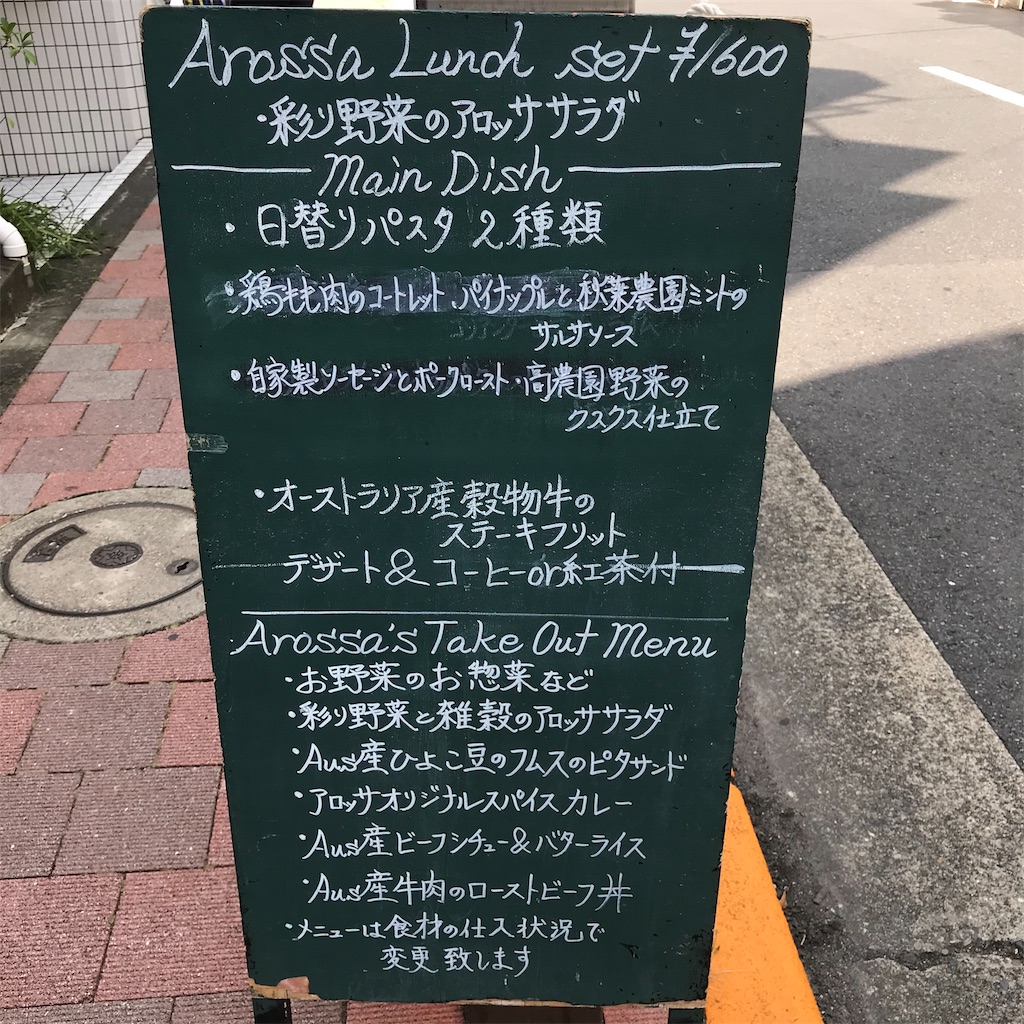 Arossa Lunch set ¥1600
・彩り野菜のアロッササラダ
Main Dish
・日替りパスタ 2種類
・鶏もも肉のコートレット パイナップルと秋葉農園ミントの
サルサソース
・自家製ソーセージとポークロースト・高農園野菜の
クスクス仕立て
・オーストラリア産穀物牛の
ステーキフリット
デザート&コーヒーor紅茶付
Arossa's Take Out Menu
・お野菜のお惣菜など
・彩り野菜と雑穀のアロッササラダ
・Aus産ひよこ豆のフムスのピタサンド
・アロッサオリジナルスパイスカレー
・Aus産ビーフシチュー&バターライス
・Aus産牛肉のローストビーフ丼
・メニューは食材の仕入状況で
変更致します